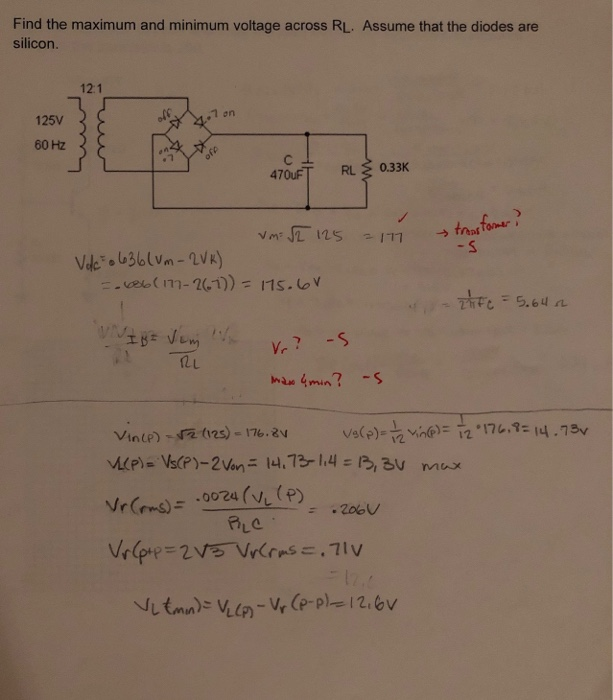 Find the maximum and minimum voltage across RL. Assume that the diodes are
silicon.
12:1
125V
60 Hz
off
.7 on
on
.7
off
C
470uF
RL
0.33K
Vm= √2 125 = 177 ✓
→ transfomer?
-5
Vdc = .636(Vm - 2VK)
(177-2(.7)) = 175.6V
1/2πfC = 5.64 Ω
RL
Vr? -5
max & min? -5
Vin(p) = √2 (125) = 176.8V
Vs(p) = 1/12 Vin(p) = 1/12 · 176.8 = 14.73V
VL(p) = Vs(p) - 2Von = 14.73 - 1.4 = 13.3V max
Vr(rms) = .0024(VL(p)) / RLC = .206V
Vr(p-p = 2√3 Vr(rms = .71V
VL(min) = VL(p) - Vr(p-p) = 12.6V